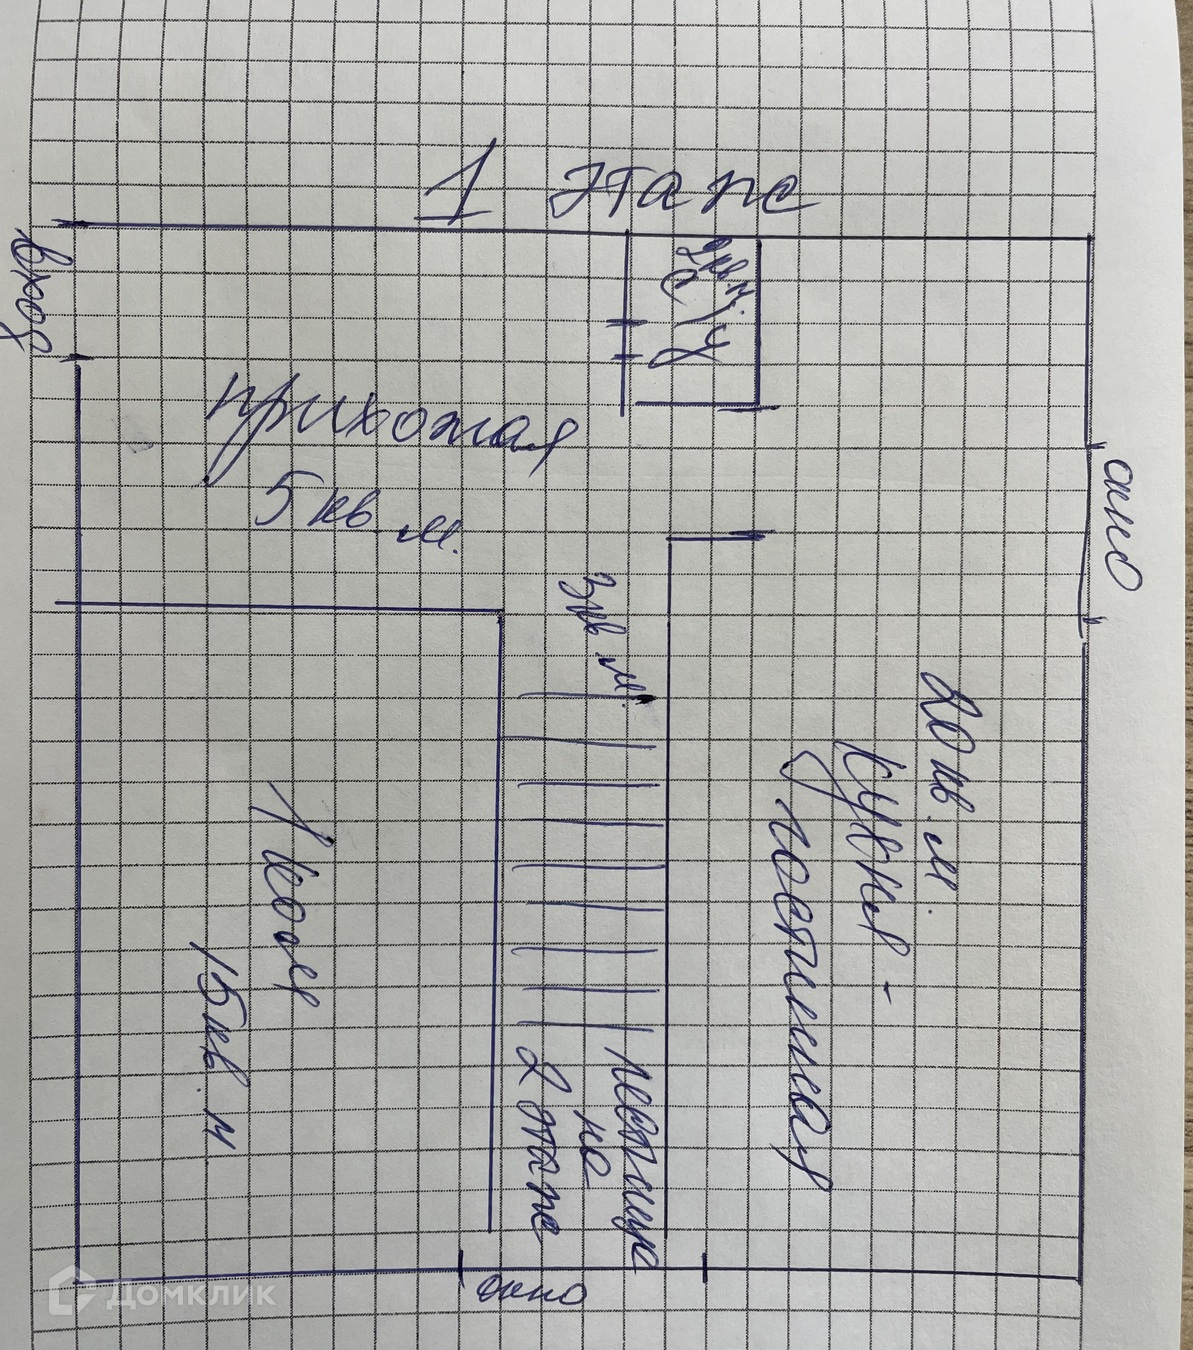 1 этаж
вход
2 кв м.
с/у
прихожая
5 кв м.
окно
3 кв м.
20 кв. м.
кухня -
гостинная
1 ком
15 кв. м
лестница
на
2 этаж
окно
Домклик